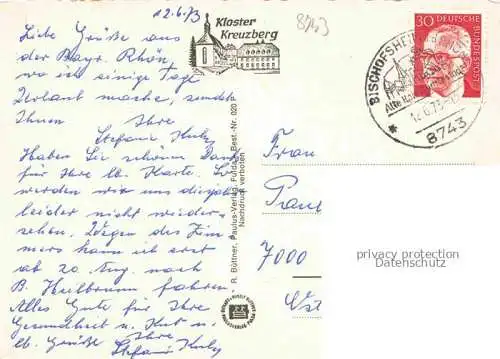 12.6.73
Liebe Grüße aus
der Bayr. Rhön,
wo ich einige Tage
Urlaub mache, sendet
Ihnen Ihre
Stefanie
Haben Sie schönen Dank
für Ihre lb. Karte. So
werden wir uns dies Jahr
leider nicht wieder-
sehen. Wegen des Zim-
mers kann ich erst
ab 20. Aug. nach
B. Heilbrunn fahren.
Alles Gute für Ihre
Gesundheit u. Kur u.
lb. Grüße Ihre
Stefanie
Kloster
Kreuzberg
8743
30 DEUTSCHE
BUNDESPOST
BISCHOFSHEIM
12.6.73
8743
R. Büttner, Paulus-Verlag, Fulda, Best.-Nr. 020 F
Nachdruck verboten
Frau
7000
privacy protection
Datenschutz